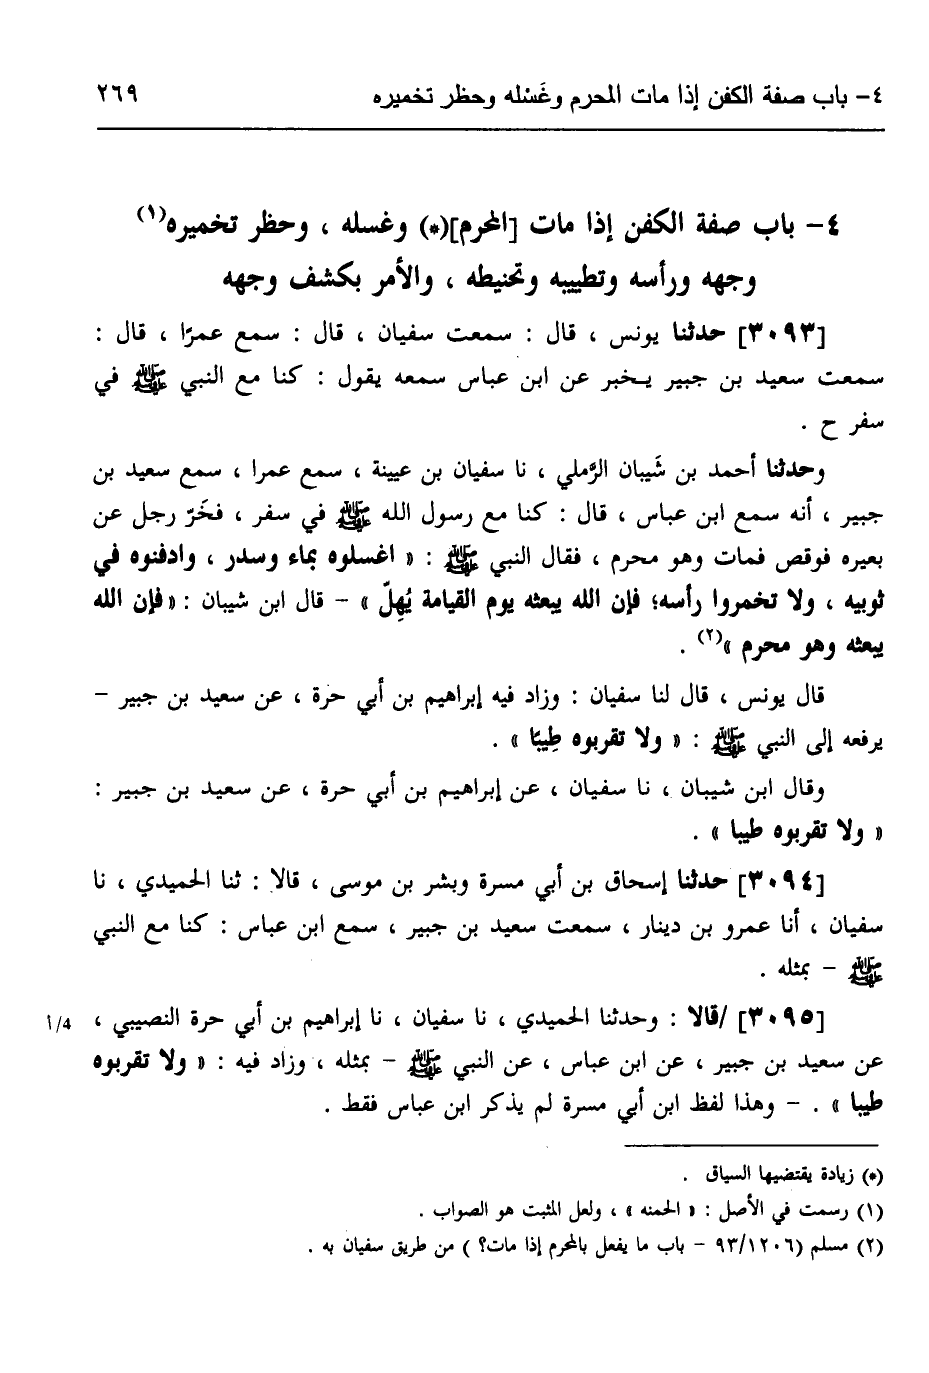 ٤- باب صفة الكفن إذا مات المحرم وغَسْله وحظر تخميره ٢٦٩
٤- باب صفة الكفن إذا مات [المحرم](*) وغسله ، وحظر تخميره(١)
وجهه ورأسه وتطييبه وتحنيطه ، والأمر بكشف وجهه
[٣٠٩٣] حدثنا يونس ، قال : سمعت سفيان ، قال : سمع عمرًا ، قال :
سمعت سعيد بن جبير يخبر عن ابن عباس سمعه يقول : كنا مع النبي ﷺ في
سفر ح .
وحدثنا أحمد بن شَيبان الرَّملي ، نا سفيان بن عيينة ، سمع عمرا ، سمع سعيد بن
جبير ، أنه سمع ابن عباس ، قال : كنا مع رسول الله ﷺ في سفر ، فخَرّ رجل عن
بعيره فوقص فمات وهو محرم ، فقال النبي ﷺ : « اغسلوه بماء وسدر ، وادفنوه في
ثوبيه ، ولا تخمروا رأسه؛ فإن الله يبعثه يوم القيامة يُهِلّ » – قال ابن شيبان : «فإن الله
يبعثه وهو محرم »(٢) .
قال يونس ، قال لنا سفيان : وزاد فيه إبراهيم بن أبي حرة ، عن سعيد بن جبير –
يرفعه إلى النبي ﷺ : « ولا تقربوه طِيبًا » .
وقال ابن شيبان ، نا سفيان ، عن إبراهيم بن أبي حرة ، عن سعيد بن جبير :
« ولا تقربوه طيبا » .
[٣٠٩٤] حدثنا إسحاق بن أبي مسرة وبشر بن موسى ، قالا : ثنا الحميدي ، نا
سفيان ، أنا عمرو بن دينار ، سمعت سعيد بن جبير ، سمع ابن عباس : كنا مع النبي
ﷺ – بمثله .
[٣٠٩٥] /قالا : وحدثنا الحميدي ، نا سفيان ، نا إبراهيم بن أبي حرة النصيبي ، 4/أ
عن سعيد بن جبير ، عن ابن عباس ، عن النبي ﷺ – بمثله ، وزاد فيه : « ولا تقربوه
طيبا » . – وهذا لفظ ابن أبي مسرة لم يذكر ابن عباس فقط .
(*) زيادة يقتضيها السياق .
(١) رسمت في الأصل : « الحمنه » ، ولعل المثبت هو الصواب .
(٢) مسلم (٩٣/١٢٠٦ – باب ما يفعل بالمحرم إذا مات؟ ) من طريق سفيان به .